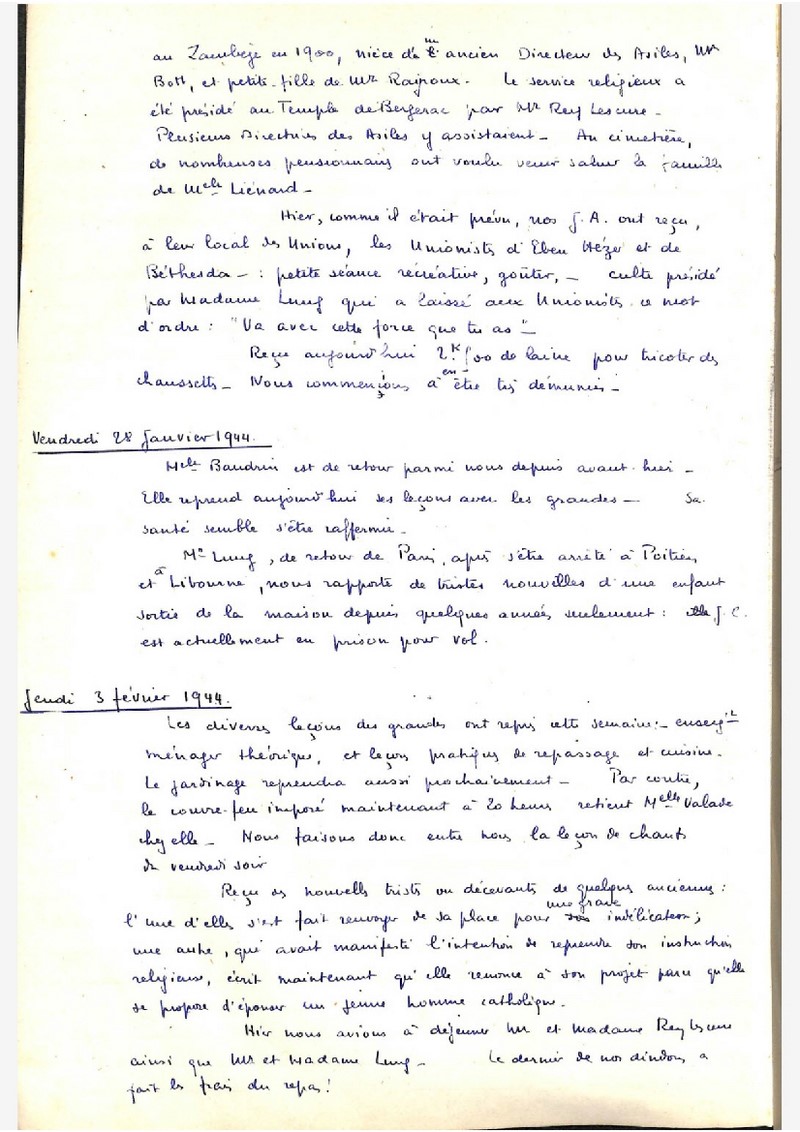 au Zambèze en 1900, nièce de l'ancien Directeur des Asiles, Mr
Bott, et petite-fille de Mr Rayroux. Le service religieux a
été présidé au Temple de Bergerac par Mr Rey Lescure.
Plusieurs Directrices des Asiles y assistaient. Au cimetière,
de nombreuses pensionnaires ont voulu venir saluer la famille
de Melle Liénard.
Hier, comme il était prévu, nos J.A. ont reçu,
à leur local des Unions, les Unionistes d'Eben Hézer et de
Béthesda : petite séance récréative, goûter, - culte présidé
par Madame Lung qui a laissé aux Unionistes ce mot
d'ordre : "Va avec cette force que tu as".
Reçu aujourd'hui 2K,500 de laine pour tricoter des
chaussettes. Nous commencions à en être très démunies.
Vendredi 28 Janvier 1944.
Melle Baudrin est de retour parmi nous depuis avant-hier.
Elle reprend aujourd'hui ses leçons avec les grandes. Sa
santé semble s'être raffermie.
Mr Lung, de retour de Paris, après s'être arrêté à Poitiers
et à Libourne, nous rapporte de tristes nouvelles d'une enfant
sortie de la maison depuis quelques années seulement : J. C.
est actuellement en prison pour vol.
Jeudi 3 février 1944.
Les diverses leçons des grandes ont repris cette semaine : enseigt
ménager théorique, et leçons pratiques de repassage et cuisine.
Le jardinage reprendra aussi prochainement. Par contre,
le couvre-feu imposé maintenant à 20 heures retient Melle Valade
chez elle. Nous faisons donc entre nous la leçon de chants
du vendredi soir
Reçu des nouvelles tristes ou décevantes de quelques anciennes :
l'une d'elles s'est fait renvoyer de sa place pour une grave indélicatesse ;
une autre, qui avait manifesté l'intention de reprendre son instruction
religieuse, écrit maintenant qu'elle renonce à son projet parce qu'elle
se propose d'épouser un jeune homme catholique.
Hier nous avions à déjeuner Mr et Madame Rey Lescure
ainsi que Mr et Madame Lung. Le dernier de nos dindons a
fait les frais du repas !